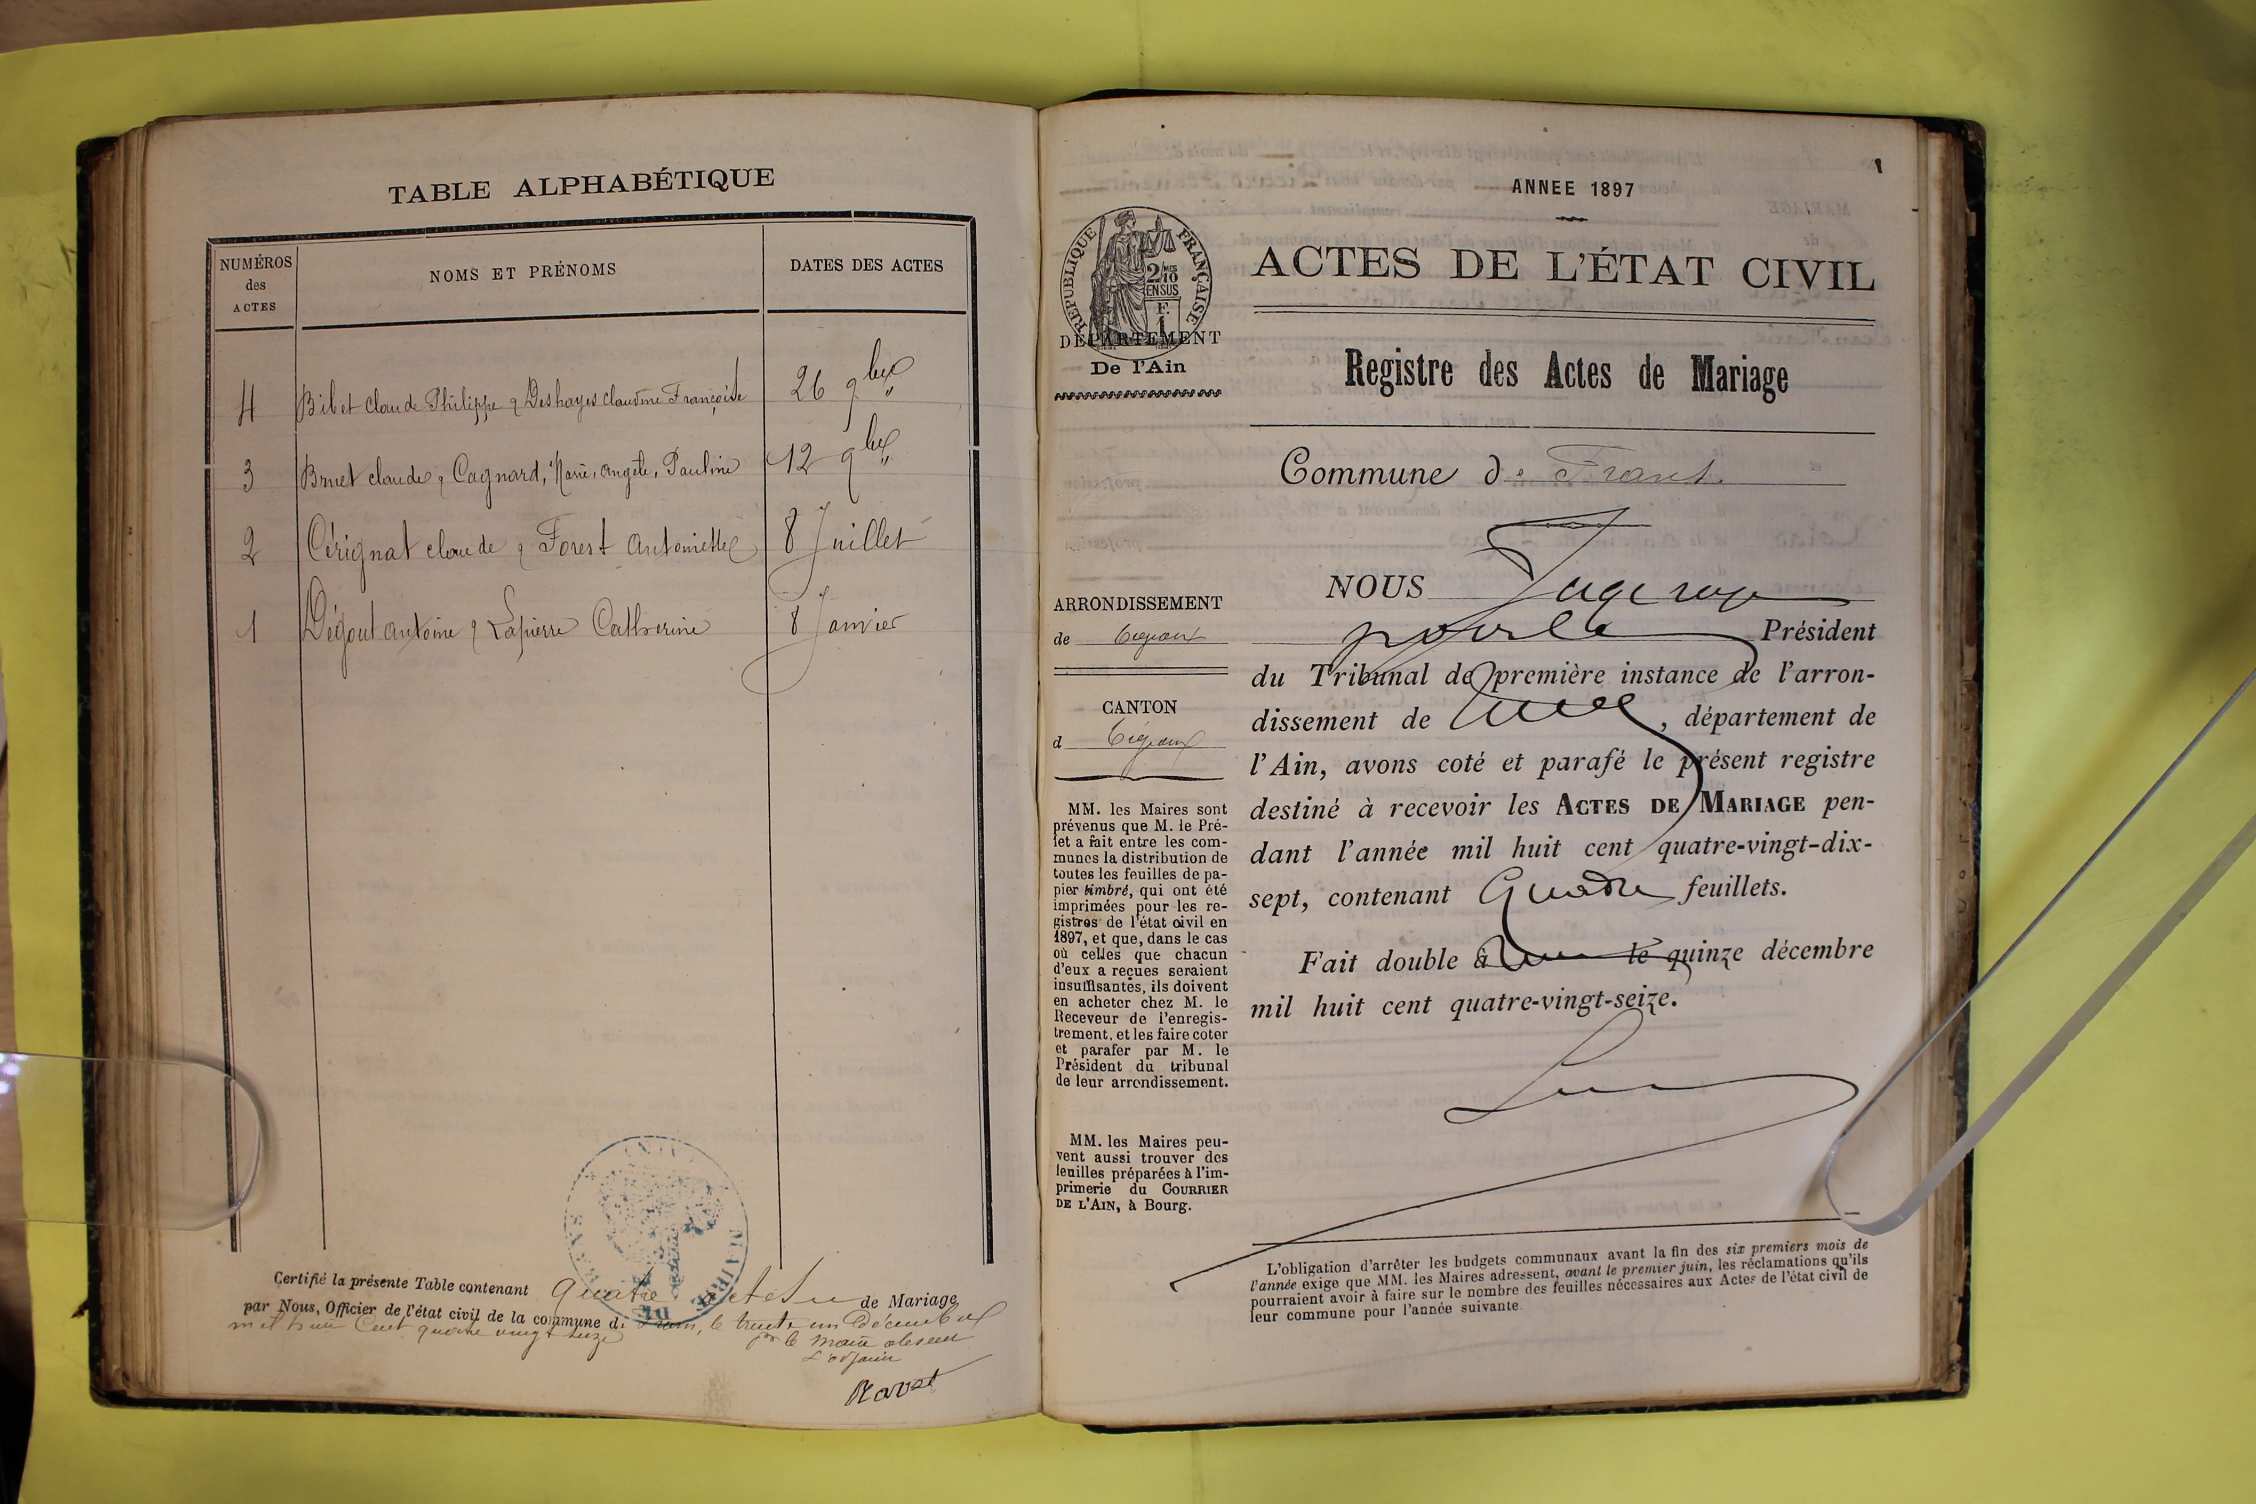 TABLE ALPHABÉTIQUE
NUMÉROS
des
ACTES
NOMS ET PRÉNOMS
DATES DES ACTES
4 Bibet Claude Philippe & Deshayes Claudine Françoise 26 9bre
3 Bruet Claude & Cagnard, Marie, Angèle, Pauline 12 9bre
2 Cérignat Claude & Forest Antoinette 8 Juillet
1 Dégout Antoine & Lapierre Catherine 8 Janvier
Certifié la présente Table contenant quatre actes de Mariage
par Nous, Officier de l'état civil de la commune d, le trente un Décembre
mil huit Cent quatre vingt seize
pr le maire absent
L'adjoint
Ravet
MAIRIE
1
ANNEE 1897
RÉPUBLIQUE FRANÇAISE
2/10
EN SUS
F.
1
DÉPARTEMENT
De l'Ain
ACTES DE L'ÉTAT CIVIL
Registre des Actes de Mariage
Commune de Frans
ARRONDISSEMENT
de Trévoux
CANTON
d Trévoux
MM. les Maires sont
prévenus que M. le Pré-
fet a fait entre les com-
munes la distribution de
toutes les feuilles de pa-
pier timbré, qui ont été
imprimées pour les re-
gistres de l'état civil en
1897, et que, dans le cas
où celles que chacun
d'eux a reçues seraient
insuffisantes, ils doivent
en acheter chez M. le
Receveur de l'enregis-
trement, et les faire coter
et parafer par M. le
Président du tribunal
de leur arrondissement.
MM. les Maires peu-
vent aussi trouver des
feuilles préparées à l'im-
primerie du COURRIER
DE L'AIN, à Bourg.
NOUS Juge
pour le Président
du Tribunal de première instance de l'arron-
dissement de , département de
l'Ain, avons coté et parafé le présent registre
destiné à recevoir les ACTES DE MARIAGE pen-
dant l'année mil huit cent quatre-vingt-dix-
sept, contenant Quatre feuillets.
Fait double à le quinze décembre
mil huit cent quatre-vingt-seize.
L'obligation d'arrêter les budgets communaux avant la fin des six premiers mois de
l'année exige que MM. les Maires adressent, avant le premier juin, les réclamations qu'ils
pourraient avoir à faire sur le nombre des feuilles nécessaires aux Actes de l'état civil de
leur commune pour l'année suivante.